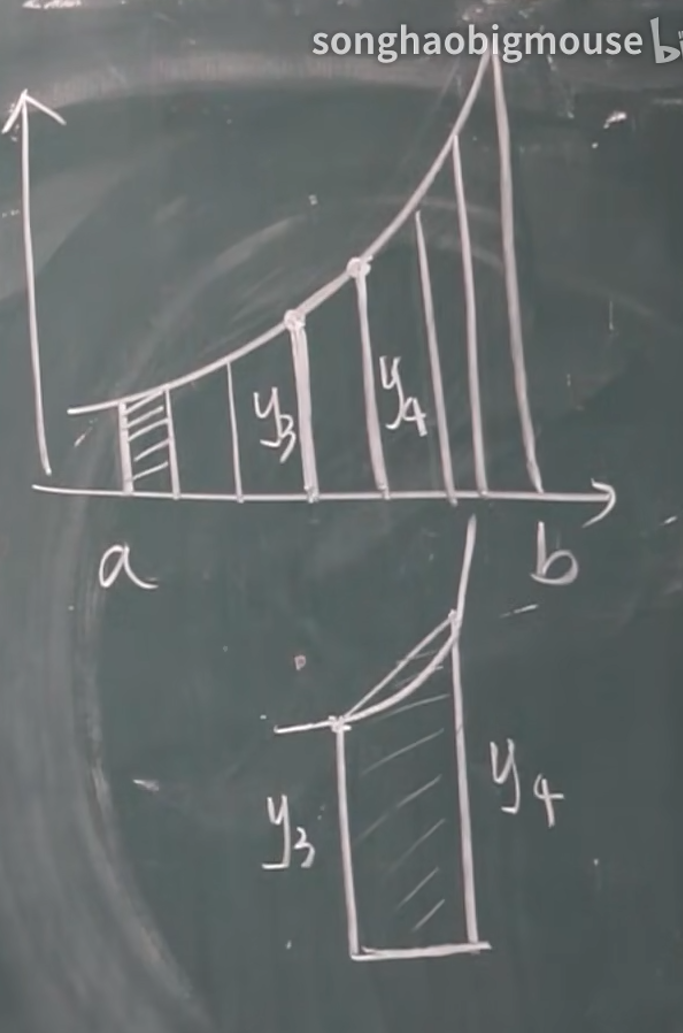 songhaobigmouse bi
y3 y4
a b
y3 y4